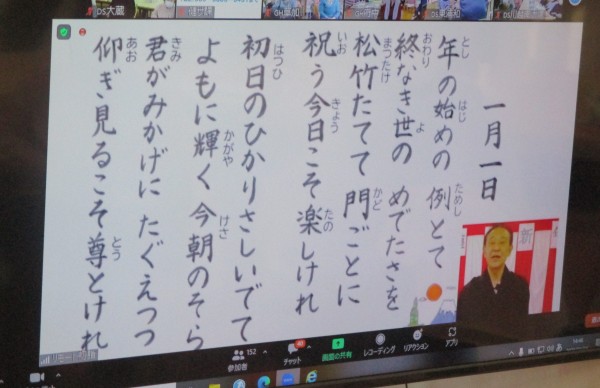 ps大蔵
一月一日
とし はじ ためし
年の始めの 例とて
おわり よ
終なき世の めでたさを
まつたけ かど
松竹たてて 門ごとに
いお きょう たの
祝う今日こそ 楽しけれ
はつひ
初日のひかりさしいでて
かがや けさ
よもに輝く 今朝のそら
きみ
君がみかげに たぐえつつ
あお とう
仰ぎ見るこそ尊とけれ
新
152
参加者
チャット
画面の共有
レコーディング
リアクション
アプリ